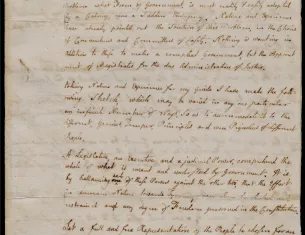 what Form of Government is most easily & easily adopted
by a Colony, upon a Sudden Emergency. Nature and Experience
have already pointed out the Solution of this Problem, in the Choice
of Conventions and Committees of safety. Nothing is wanting in
Addition to these to make a compleat Government, but the Appoint
ment of Magistrates for the due Administration of Justice.
Taking Nature and Experience for my Guide I have made the follo
wing Sketch, which may be varied in any one particular
an infinite Number of Ways, So as to accommodate it to the
different, Genius, Temper, Principles and even Prejudices of different
People.
A Legislative, an Executive and a judicial Power, comprehend the
whole of what is meant and understood by Government. It is
by ballancing each of these Powers against the other two, that the Effort
in humane Nature towards
restrained and any degree of Freedom preserved in the Constitution.
Let a full and free Representation of the People be chosen for an